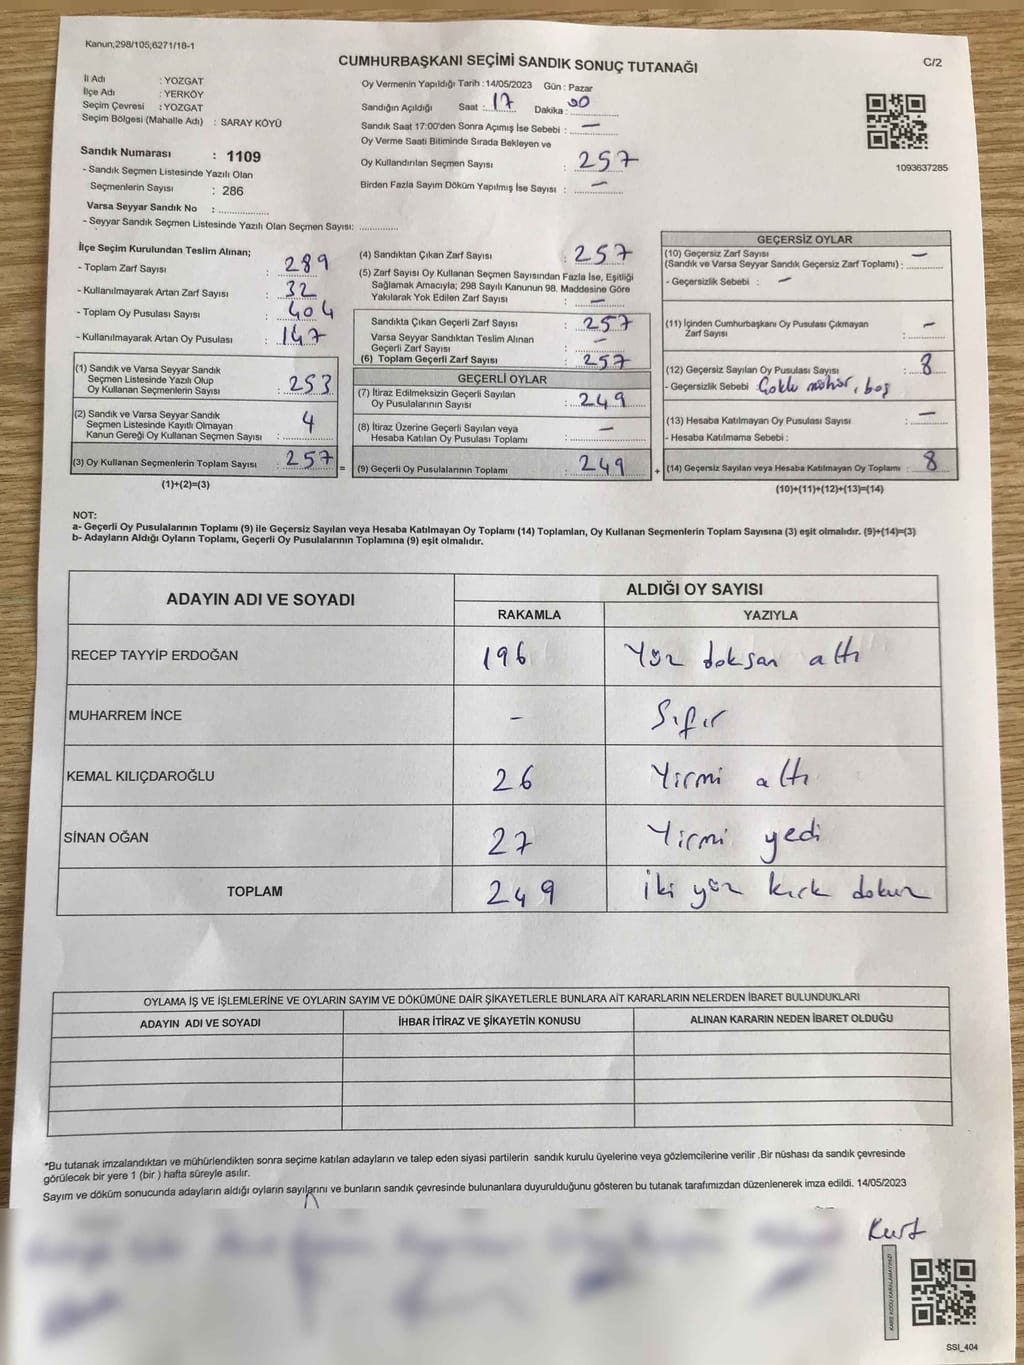 Kanun;298/105;6271/18-1
CUMHURBAŞKANI SEÇİMİ SANDIK SONUÇ TUTANAĞI
C/2
İl Adı : YOZGAT
İlçe Adı : YERKÖY
Seçim Çevresi : YOZGAT
Seçim Bölgesi (Mahalle Adı) : SARAY KÖYÜ
Sandık Numarası : 1109
- Sandık Seçmen Listesinde Yazılı Olan
Seçmenlerin Sayısı : 286
Varsa Seyyar Sandık No :
- Seyyar Sandık Seçmen Listesinde Yazılı Olan Seçmen Sayısı:
Oy Vermenin Yapıldığı Tarih :14/05/2023 Gün : Pazar
Sandığın Açıldığı Saat : 17 Dakika : 00
Sandık Saat 17:00'den Sonra Açımış İse Sebebi : —
Oy Verme Saati Bitiminde Sırada Bekleyen ve
Oy Kullandırılan Seçmen Sayısı : 257
Birden Fazla Sayım Döküm Yapılmış İse Sayısı : —
1093637285
İlçe Seçim Kurulundan Teslim Alınan;
- Toplam Zarf Sayısı : 289
- Kullanılmayarak Artan Zarf Sayısı : 32
- Toplam Oy Pusulası Sayısı : 404
- Kullanılmayarak Artan Oy Pusulası : 147
(1) Sandık ve Varsa Seyyar Sandık
Seçmen Listesinde Yazılı Olup
Oy Kullanan Seçmenlerin Sayısı : 253
(2) Sandık ve Varsa Seyyar Sandık
Seçmen Listesinde Kayıtlı Olmayan
Kanun Gereği Oy Kullanan Seçmen Sayısı : 4
(3) Oy Kullanan Seçmenlerin Toplam Sayısı : 257
(1)+(2)=(3)
(4) Sandıktan Çıkan Zarf Sayısı : 257
(5) Zarf Sayısı Oy Kullanan Seçmen Sayısından Fazla İse, Eşitliği
Sağlamak Amacıyla; 298 Sayılı Kanunun 98. Maddesine Göre
Yakılarak Yok Edilen Zarf Sayısı : —
Sandıkta Çıkan Geçerli Zarf Sayısı : 257
Varsa Seyyar Sandıktan Teslim Alınan
Geçerli Zarf Sayısı : —
(6) Toplam Geçerli Zarf Sayısı : 257
GEÇERLİ OYLAR
(7) İtiraz Edilmeksizin Geçerli Sayılan
Oy Pusulalarının Sayısı : 249
(8) İtiraz Üzerine Geçerli Sayılan veya
Hesaba Katılan Oy Pusulası Toplamı : —
= (9) Geçerli Oy Pusulalarının Toplamı : 249 +
GEÇERSİZ OYLAR
(10) Geçersiz Zarf Sayısı
(Sandık ve Varsa Seyyar Sandık Geçersiz Zarf Toplamı) : —
- Geçersizlik Sebebi : —
(11) İçinden Cumhurbaşkanı Oy Pusulası Çıkmayan
Zarf Sayısı : —
(12) Geçersiz Sayılan Oy Pusulası Sayısı : 8
- Geçersizlik Sebebi : Çoklu mühür, boş
(13) Hesaba Katılmayan Oy Pusulası Sayısı : —
- Hesaba Katılmama Sebebi :
(14) Geçersiz Sayılan veya Hesaba Katılmayan Oy Toplamı : 8
(10)+(11)+(12)+(13)=(14)
NOT:
a- Geçerli Oy Pusulalarının Toplamı (9) ile Geçersiz Sayılan veya Hesaba Katılmayan Oy Toplamı (14) Toplamları, Oy Kullanan Seçmenlerin Toplam Sayısına (3) eşit olmalıdır. (9)+(14)=(3)
b- Adayların Aldığı Oyların Toplamı, Geçerli Oy Pusulalarının Toplamına (9) eşit olmalıdır.
ADAYIN ADI VE SOYADI
ALDIĞI OY SAYISI
RAKAMLA YAZIYLA
RECEP TAYYİP ERDOĞAN 196 Yüz doksan altı
MUHARREM İNCE - Sıfır
KEMAL KILIÇDAROĞLU 26 Yirmi altı
SİNAN OĞAN 27 Yirmi yedi
TOPLAM 249 İki yüz kırk dokuz
OYLAMA İŞ VE İŞLEMLERİNE VE OYLARIN SAYIM VE DÖKÜMÜNE DAİR ŞİKAYETLERLE BUNLARA AİT KARARLARIN NELERDEN İBARET BULUNDUKLARI
ADAYIN ADI VE SOYADI İHBAR İTİRAZ VE ŞİKAYETİN KONUSU ALINAN KARARIN NEDEN İBARET OLDUĞU
*Bu tutanak imzalandıktan ve mühürlendikten sonra seçime katılan adayların ve talep eden siyasi partilerin sandık kurulu üyelerine veya gözlemcilerine verilir .Bir nüshası da sandık çevresinde
görülecek bir yere 1 (bir ) hafta süreyle asılır.
Sayım ve döküm sonucunda adayların aldığı oyların sayılarını ve bunların sandık çevresinde bulunanlara duyurulduğunu gösteren bu tutanak tarafımızdan düzenlenerek imza edildi. 14/05/2023
Kurt
KARE KODU KARALAMAYINIZ!
SSI_404